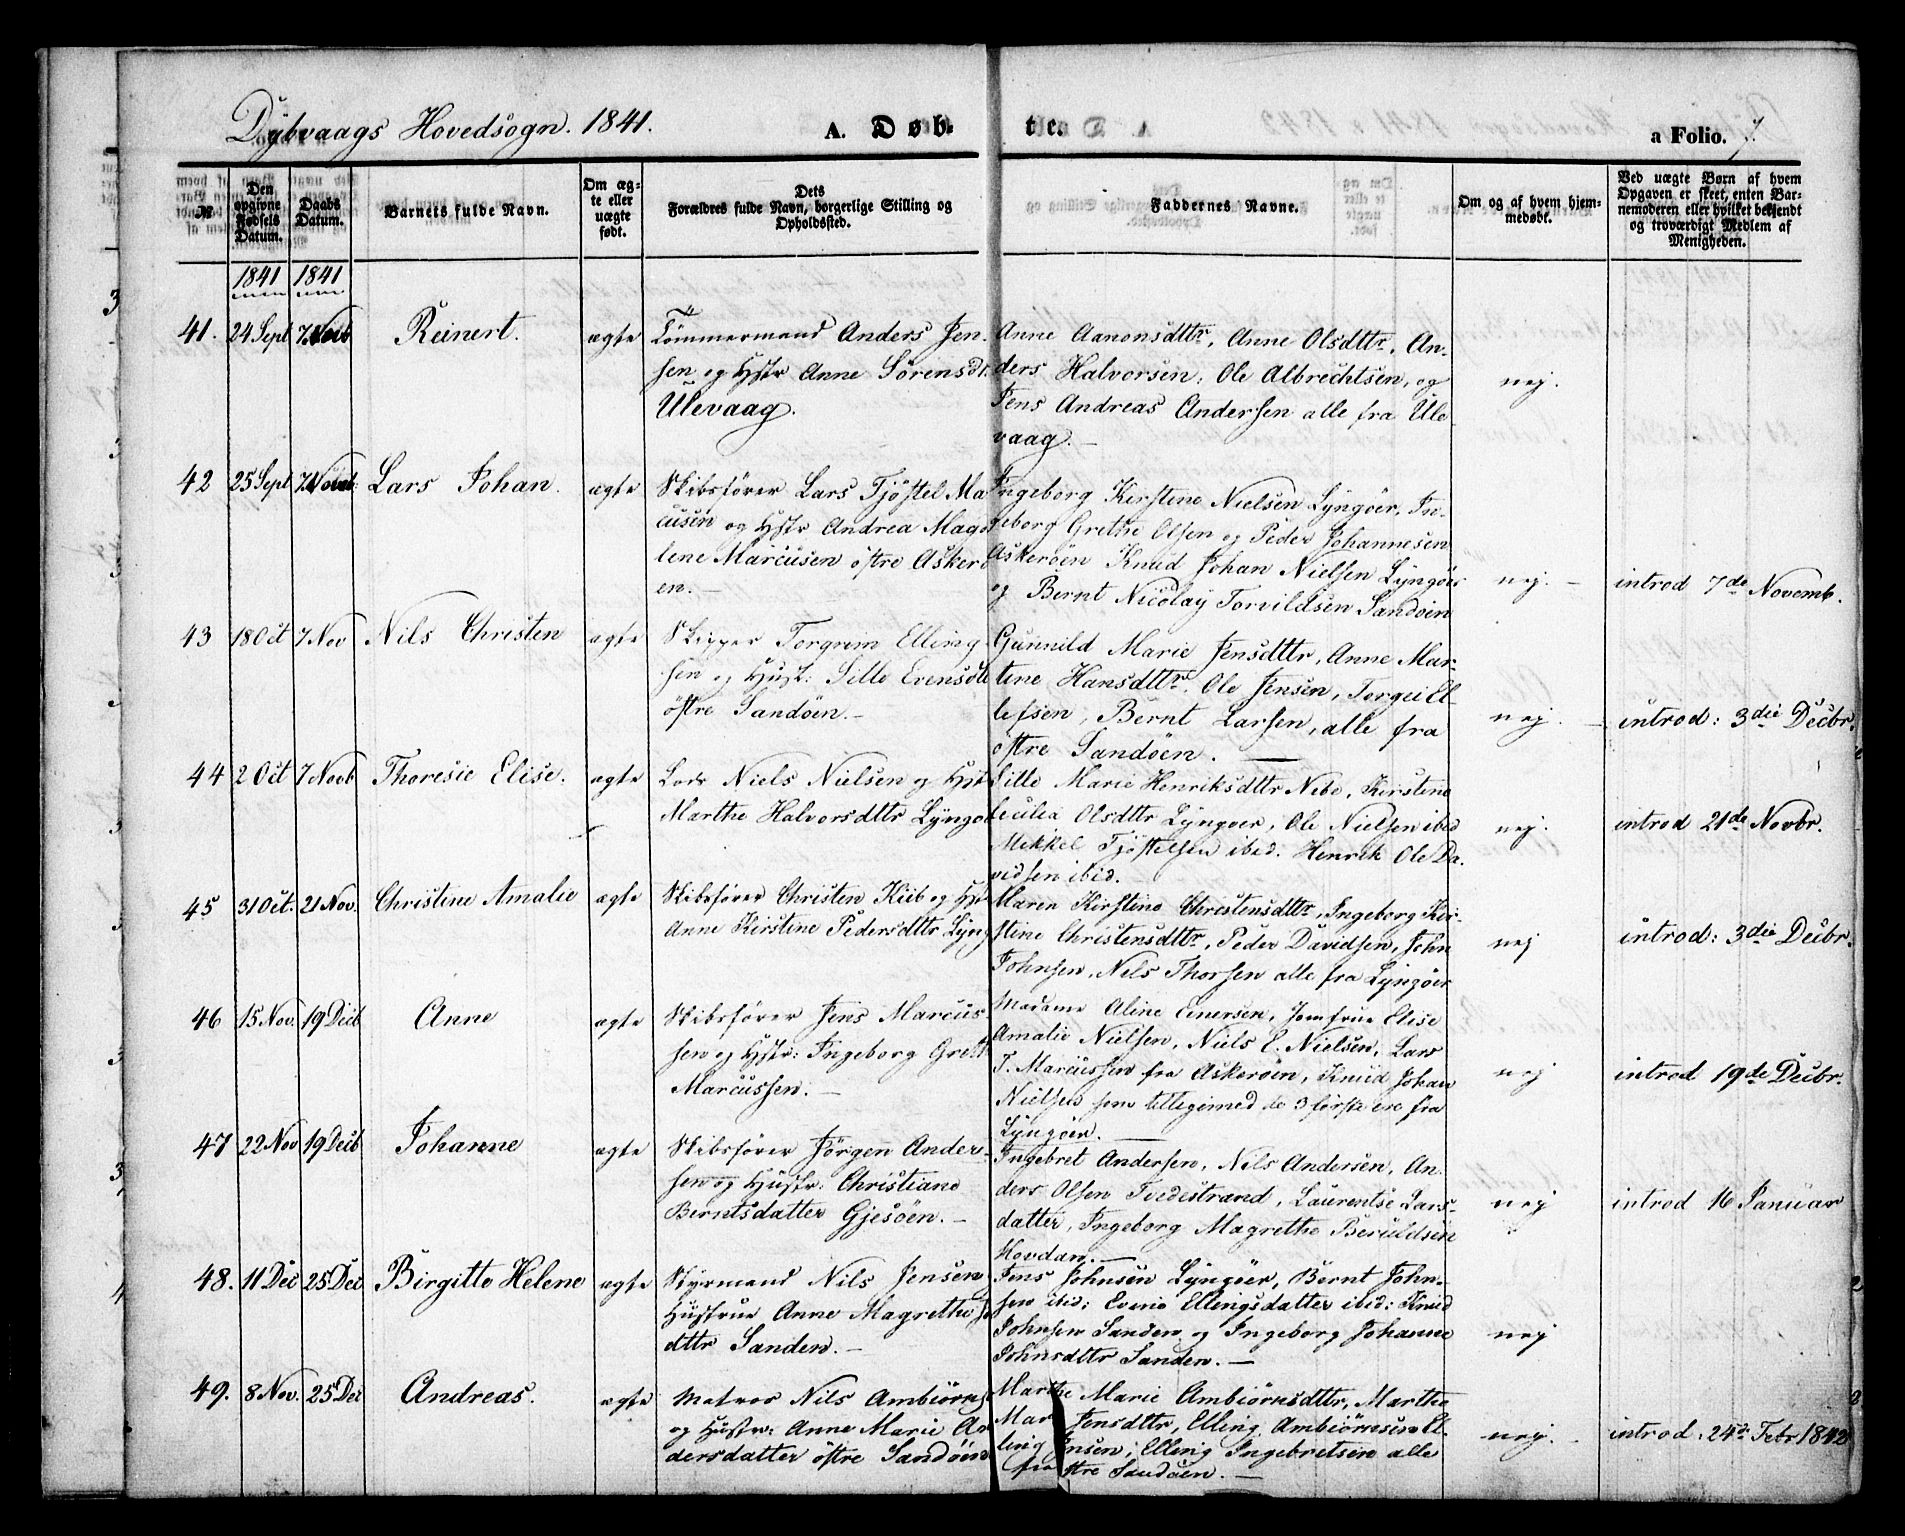 Dybvaags Hovedsogn. 1841.
A. Døb-
te.
a Folio. 7.
№
Den opgivne Fødsels Datum.
Daabs Datum.
Barnets fulde Navn.
Om ægte eller uægte født.
Dets Forældres fulde Navn, borgerlige Stilling og Opholdssted.
Faddernes Navne.
Om og af hvem hjemmedøbt.
Ved uægte Børn af hvem Opgaven er skeet, enten Barnemoderen eller hvilket bekjendt og troværdigt Medlem af Menigheden.
1841 1841
41. 24 Sept 7 Novb Reinert. ægte
Tömmermand Anders Jen-
sen og Hstr Anne Sörensdt.
Ulevaag.
Anne Aanonsdttr, Anne Olsdttr, An-
ders Halvorsen, Ole Albrechtsen, og
Jens Andreas Andersen alle fra Ule
vaag.
nej.
42 25 Sept 7 Novb. Lars Johan. ægte
Skibsförer Lars Tjöstel Ma
cusen og Hstr Andrea Magd
lene Marcusen östre Askerö
en.
Ingeborg Kirstine Nielsen Lyngöer, In-
geborg Grethe Olsen og Peder Johannesen
Askeröen Knud Johan Nielsen Lyngöer
og Bernt Nicolay Torvildsen Sandöen
nej.
introd 7de Novemb.
43 18 Oct 7 Nov Nils Christen ægte
Skipper Torgrim Elling
sen og Hust: Sille Evensdtt
östre Sandöen.
Gunnild Marie Jensdttr, Anne Mar-
tine Hansdttr. Ole Jensen, Torgei El-
lefsen, Bernt Larsen, alle fra
östre Sandöen.
nej.
introd: 3die Decbr.
44 2 Oct 7 Novb Thoresie Elise. ægte
Lods Niels Nielsen og Hst
Marthe Halvorsdttr Lyngö
Sille Marie Henriksdttr Nebe, Kirstine
Cecilia Olsdttr Lyngöer, Ole Nielsen ibid
Mikkel Tjöstelsen ibid. Henrik Ole Da-
vidsen ibid.
nej.
introd 21de Novbr.
45 31 Oct. 21 Nov. Christine Amalie ægte
Skibsförer Christen Kieb og Hst
Anne Kirstine Pedersdttr Lyng
Maren Kirstine Christensdttr, Ingeborg Kir-
stine Christensdttr, Peder Davidsen, John
Johnsen, Nels Thorsen alle fra Lyngöer
nej
introd: 3die Decbr.
46 15 Nov. 19 Decb Anne ægte
Skibsförer Jens Marcus-
sen og Hstr: Ingeborg Greth
Marcussen.
Madame Aline Einersen, Jomfrue Elise
Amalie Nielsen, Niels E. Nielsen, Lars
T. Marcussen fra Askeröen, Knud Johan
Nielsen som tilligemed de 3 förste ere fra
Lyngöer.
nej
introd 19de Decbr.
47 22 Nov 19 Decb Johanne ægte
Skibsförer Jörgen Ander-
sen og Hustr: Christiane
Berntsdatter Gjesöen.
Ingebret Andersen, Nils Andersen, An-
ders Olsen Terdestrand, Laurentse Lars-
datter, Ingeborg Magrethe Beruldsen
Hovdan.
nej
introd 16 Januar
48. 11 Dec 25 Dec Birgitte Helene ægte
Styrmand Nils Jensen
Hustrue Anne Magrethe
dttr Sanden.
Jens Johnsen Lyngöer, Bernt John-
sen ibid; Evene Ellingsdatter ibid: Knud
Johnsen Sanden og Ingeborg Johanne
Johnsdttr Sanden.
nej
49. 8 Nov. 25 Dec Andreas. ægte
Matros Nils Ambiörns
og Hustr: Anne Marie An
dersdatter östre Sandöen
Marthe Marie Ambiörnsdttr, Marthe
Mar Jensdttr, Elling Ambiörnsen El-
ling Jensen, Elling Ingebretsen alle
fra östre Sandöen.
nej.
introd. 24de Febr 1842